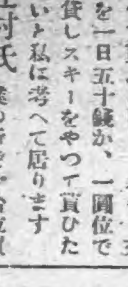 を一日五十錢か、一圓位で
貸しスキーをやつて貰ひた
いと私は考へて居ります
村氏